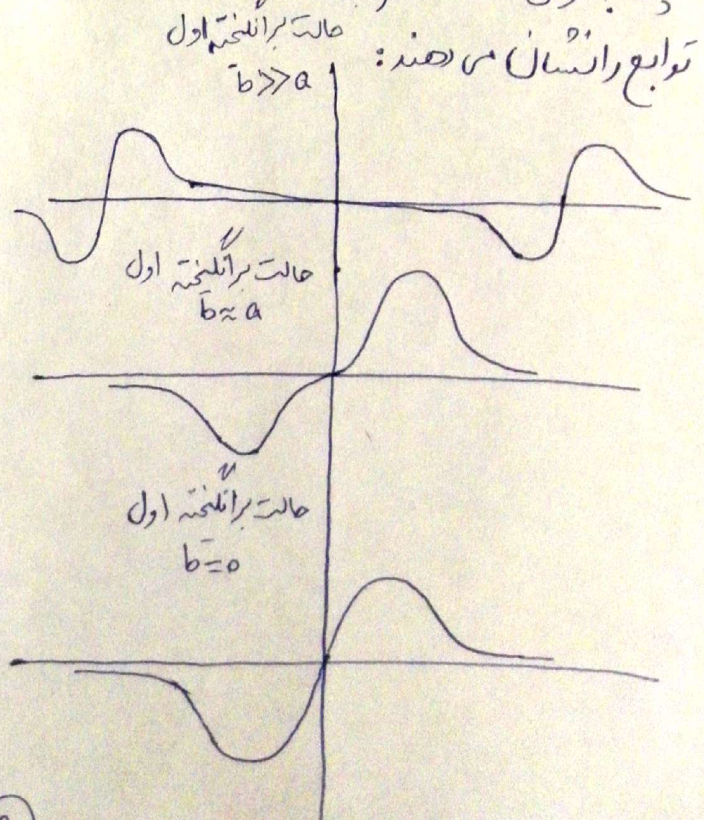 توابع را نشان می دهند:
حالت برانگیخته اول
b>>a
حالت برانگیخته اول
b≈a
حالت برانگیخته اول
b=0